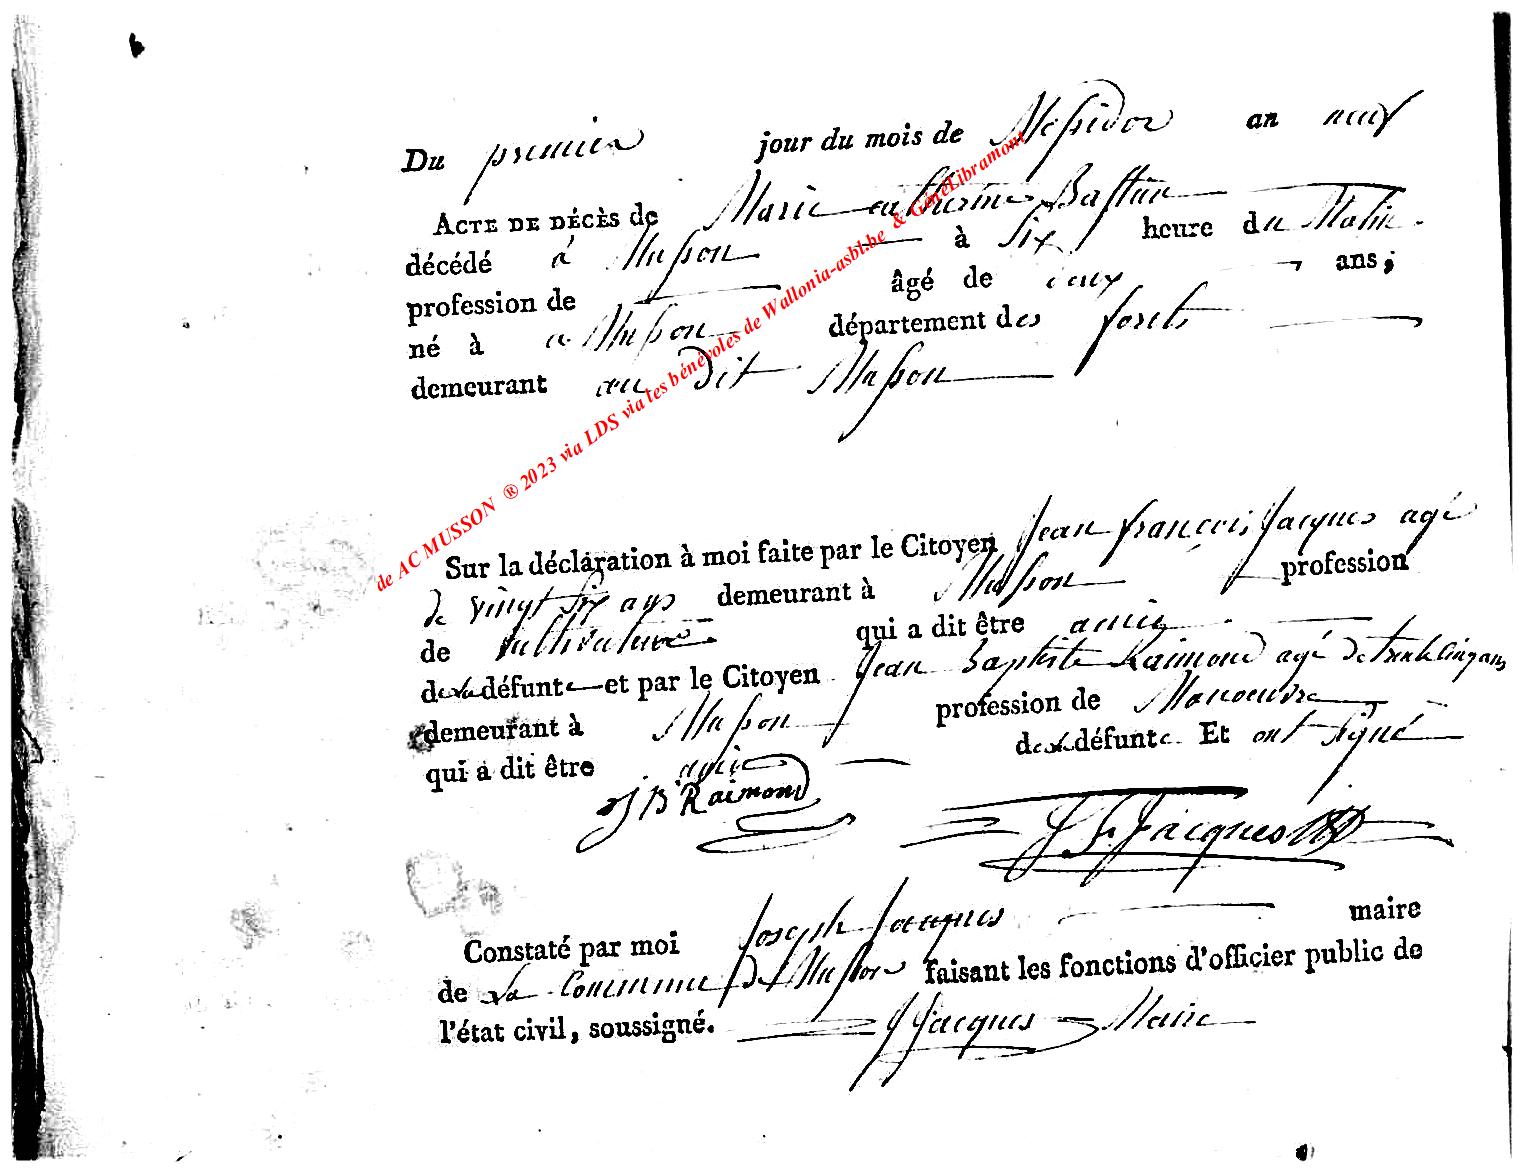 Du premier jour du mois de Messidor an neuf
ACTE DE DÉCÈS de Marie catherine Bastin
décédé à Musson à six heure du Matin
profession de âgé de deux ans;
né à a Musson département des forets
demeurant au dit Musson
Sur la déclaration à moi faite par le Citoyen Jean françois Jacques agé
de vingt six ans demeurant à Musson profession
de cultivateur qui a dit être amis
de la défunte et par le Citoyen Jean Baptiste Raimond agé de trente cinq ans
demeurant à Musson profession de Manoeuvre
qui a dit être de la défunte. Et ont signé
J B Raimond
J F Jacques
Constaté par moi Joseph Jacques maire
de La Commune de Musson faisant les fonctions d'officier public de
l'état civil, soussigné. J Jacques Maire
de AC MUSSON ® 2023 via LDS via les bénévoles de Wallonia-asbl.be & GénéLibramont